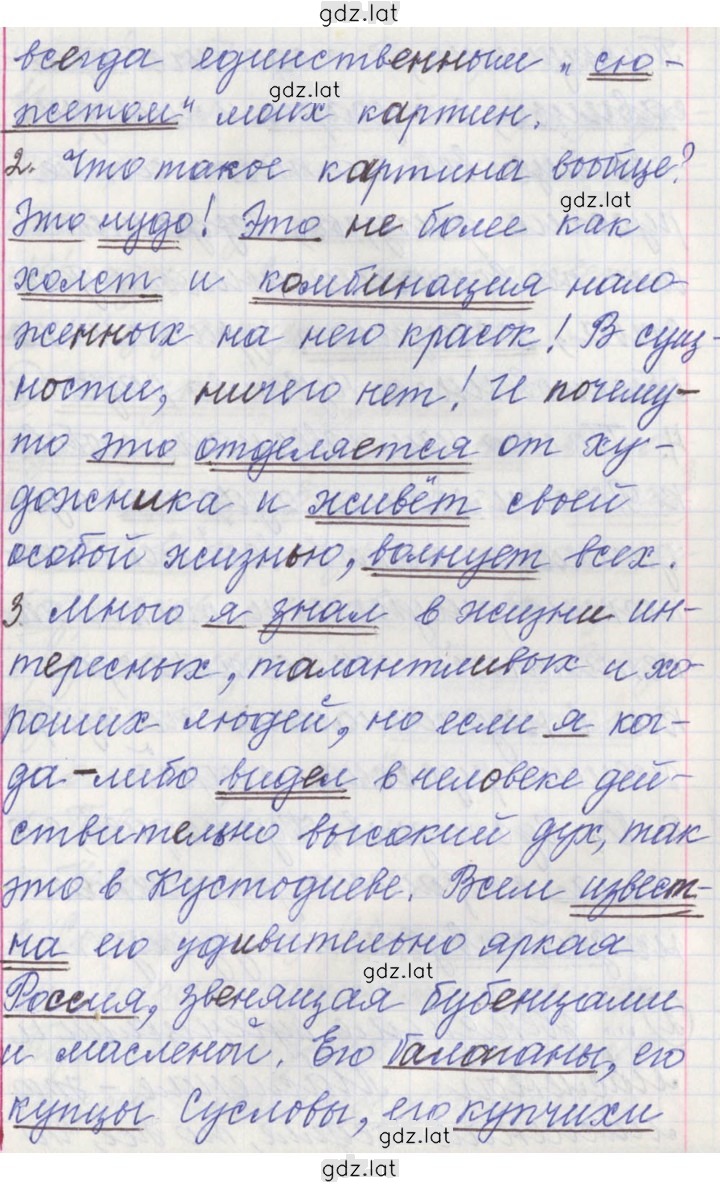 gdz.lat
всегда единственным „сю-
gdz.lat
жетом" моих картин.
2. Что такое картина вообще?
gdz.lat
Это чудо! Это не более как
холст и комбинация нало-
gdz.lat
женных на него красок! В сущ-
ности, ничего нет! И почему-
gdz.lat
то это отделяется от ху-
дожника и живёт своей
gdz.lat
особой жизнью, волнует всех.
3. Много я знал в жизни ин-
gdz.lat
тересных, талантливых и хо-
роших людей, но если я ког-
gdz.lat
да-либо видел в человеке дей-
ствительно высокий дух, так
gdz.lat
это в Кустодиеве. Всем извест-
на его удивительно яркая
gdz.lat
Россия, звенящая бубенцами
и масленой. Его балаганы, его
gdz.lat
купцы Сусловы, его купчихи
gdz.lat
gdz.lat